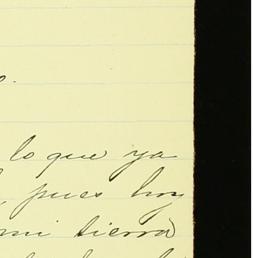 lo que ya
pues hoy
mi tierra